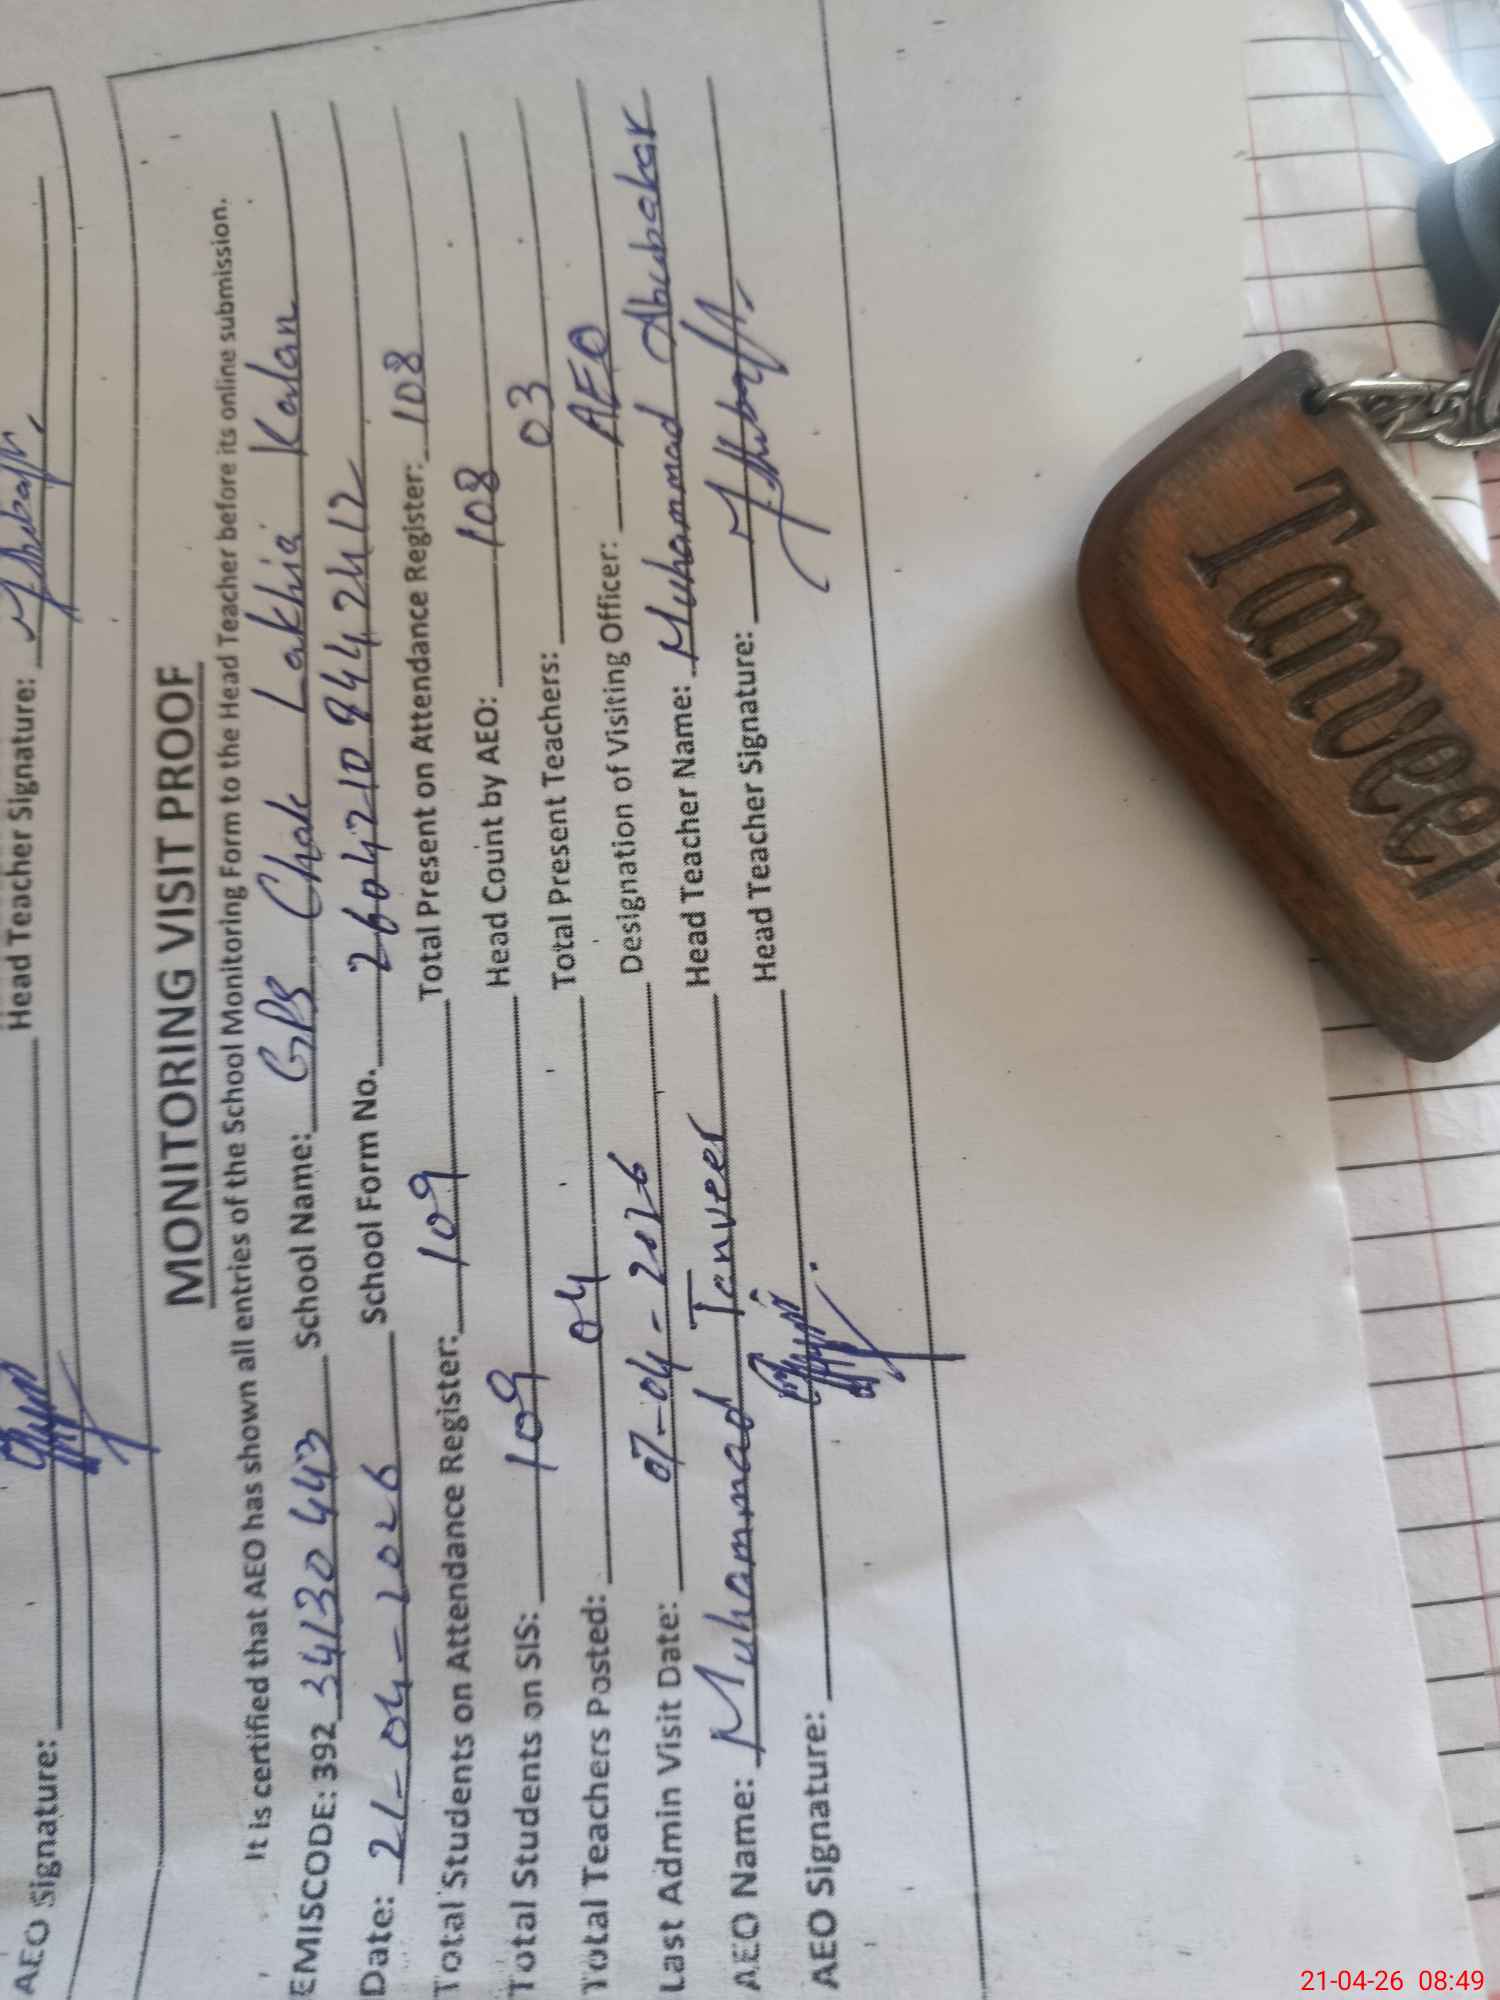 AEO Signature: Head Teacher Signature:
MONITORING VISIT PROOF
It is certified that AEO has shown all entries of the School Monitoring Form to the Head Teacher before its online submission.
EMISCODE: 392 34130443 School Name: GPS Chak Lakhia Kalan
Date: 21-04-2026 School Form No. 26042109442412
Total Students on Attendance Register: 109 Total Present on Attendance Register: 108
Total Students on SIS: 109 Head Count by AEO: 108
Total Teachers Posted: 04 Total Present Teachers: 03
Last Admin Visit Date: 07-04-2026 Designation of Visiting Officer: AEO
AEO Name: Muhammad Tanveer Head Teacher Name: Muhammad Abubakar
AEO Signature: Head Teacher Signature:
Tanveer
21-04-26 08:49